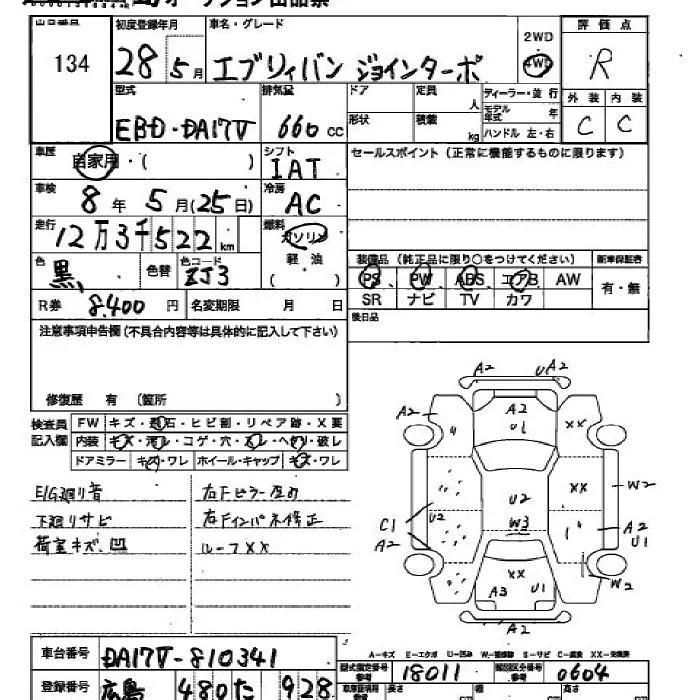 オークション出品票
出品番号 初度登録年月 車名・グレード 2WD 4WD 評価点
134 28年5月 エブリィバン ジョインターボ R
型式 排気量 ドア 定員 人 ディーラー・並行 外装 内装
EBD-DA17V 660cc 形状 積載 kg モデル年式 年 ハンドル 左・右 C C
車歴 自家用・( ) シフト IAT セールスポイント(正常に機能するものに限ります)
車検 8年5月(25日) 冷房 AC
走行 12万3千522km 燃料 ガソリン 軽油 ( )
色 黒 色替 色コード ZJ3
装備品(純正品に限り○をつけてください) 新車保証書
PS、PW、ABS、エアB、AW 有・無
SR ナビ TV カワ
R券 8,400円 名変期限 月 日
後日品
注意事項申告欄(不具合内容等は具体的に記入して下さい)
修復歴 有 (箇所 )
検査員記入欄
FW キズ・飛石・ヒビ割・リペア跡・X要
内装 キズ・汚レ・コゲ・穴・スレ・ヘタリ・破レ
ドアミラー キズ・ワレ ホイール・キャップ キズ・ワレ
E/G廻り音
下廻りサビ
荷室キズ、凹
右Fインパネ修正
ルーフXX
A2 UA2
A2 A2 U1 XX
U2 XX W2
C1 U2 W3 A2
A2 U1
XX W2
A3 U1
A2
A-キズ E-エクボ U-凹み W-補修跡 S-サビ C-腐食 XX-交換済
車台番号 DA17V-810341
型式指定番号 参考 18011 類別区分番号 参考 0604
登録番号 広島 480 た 928
長さ